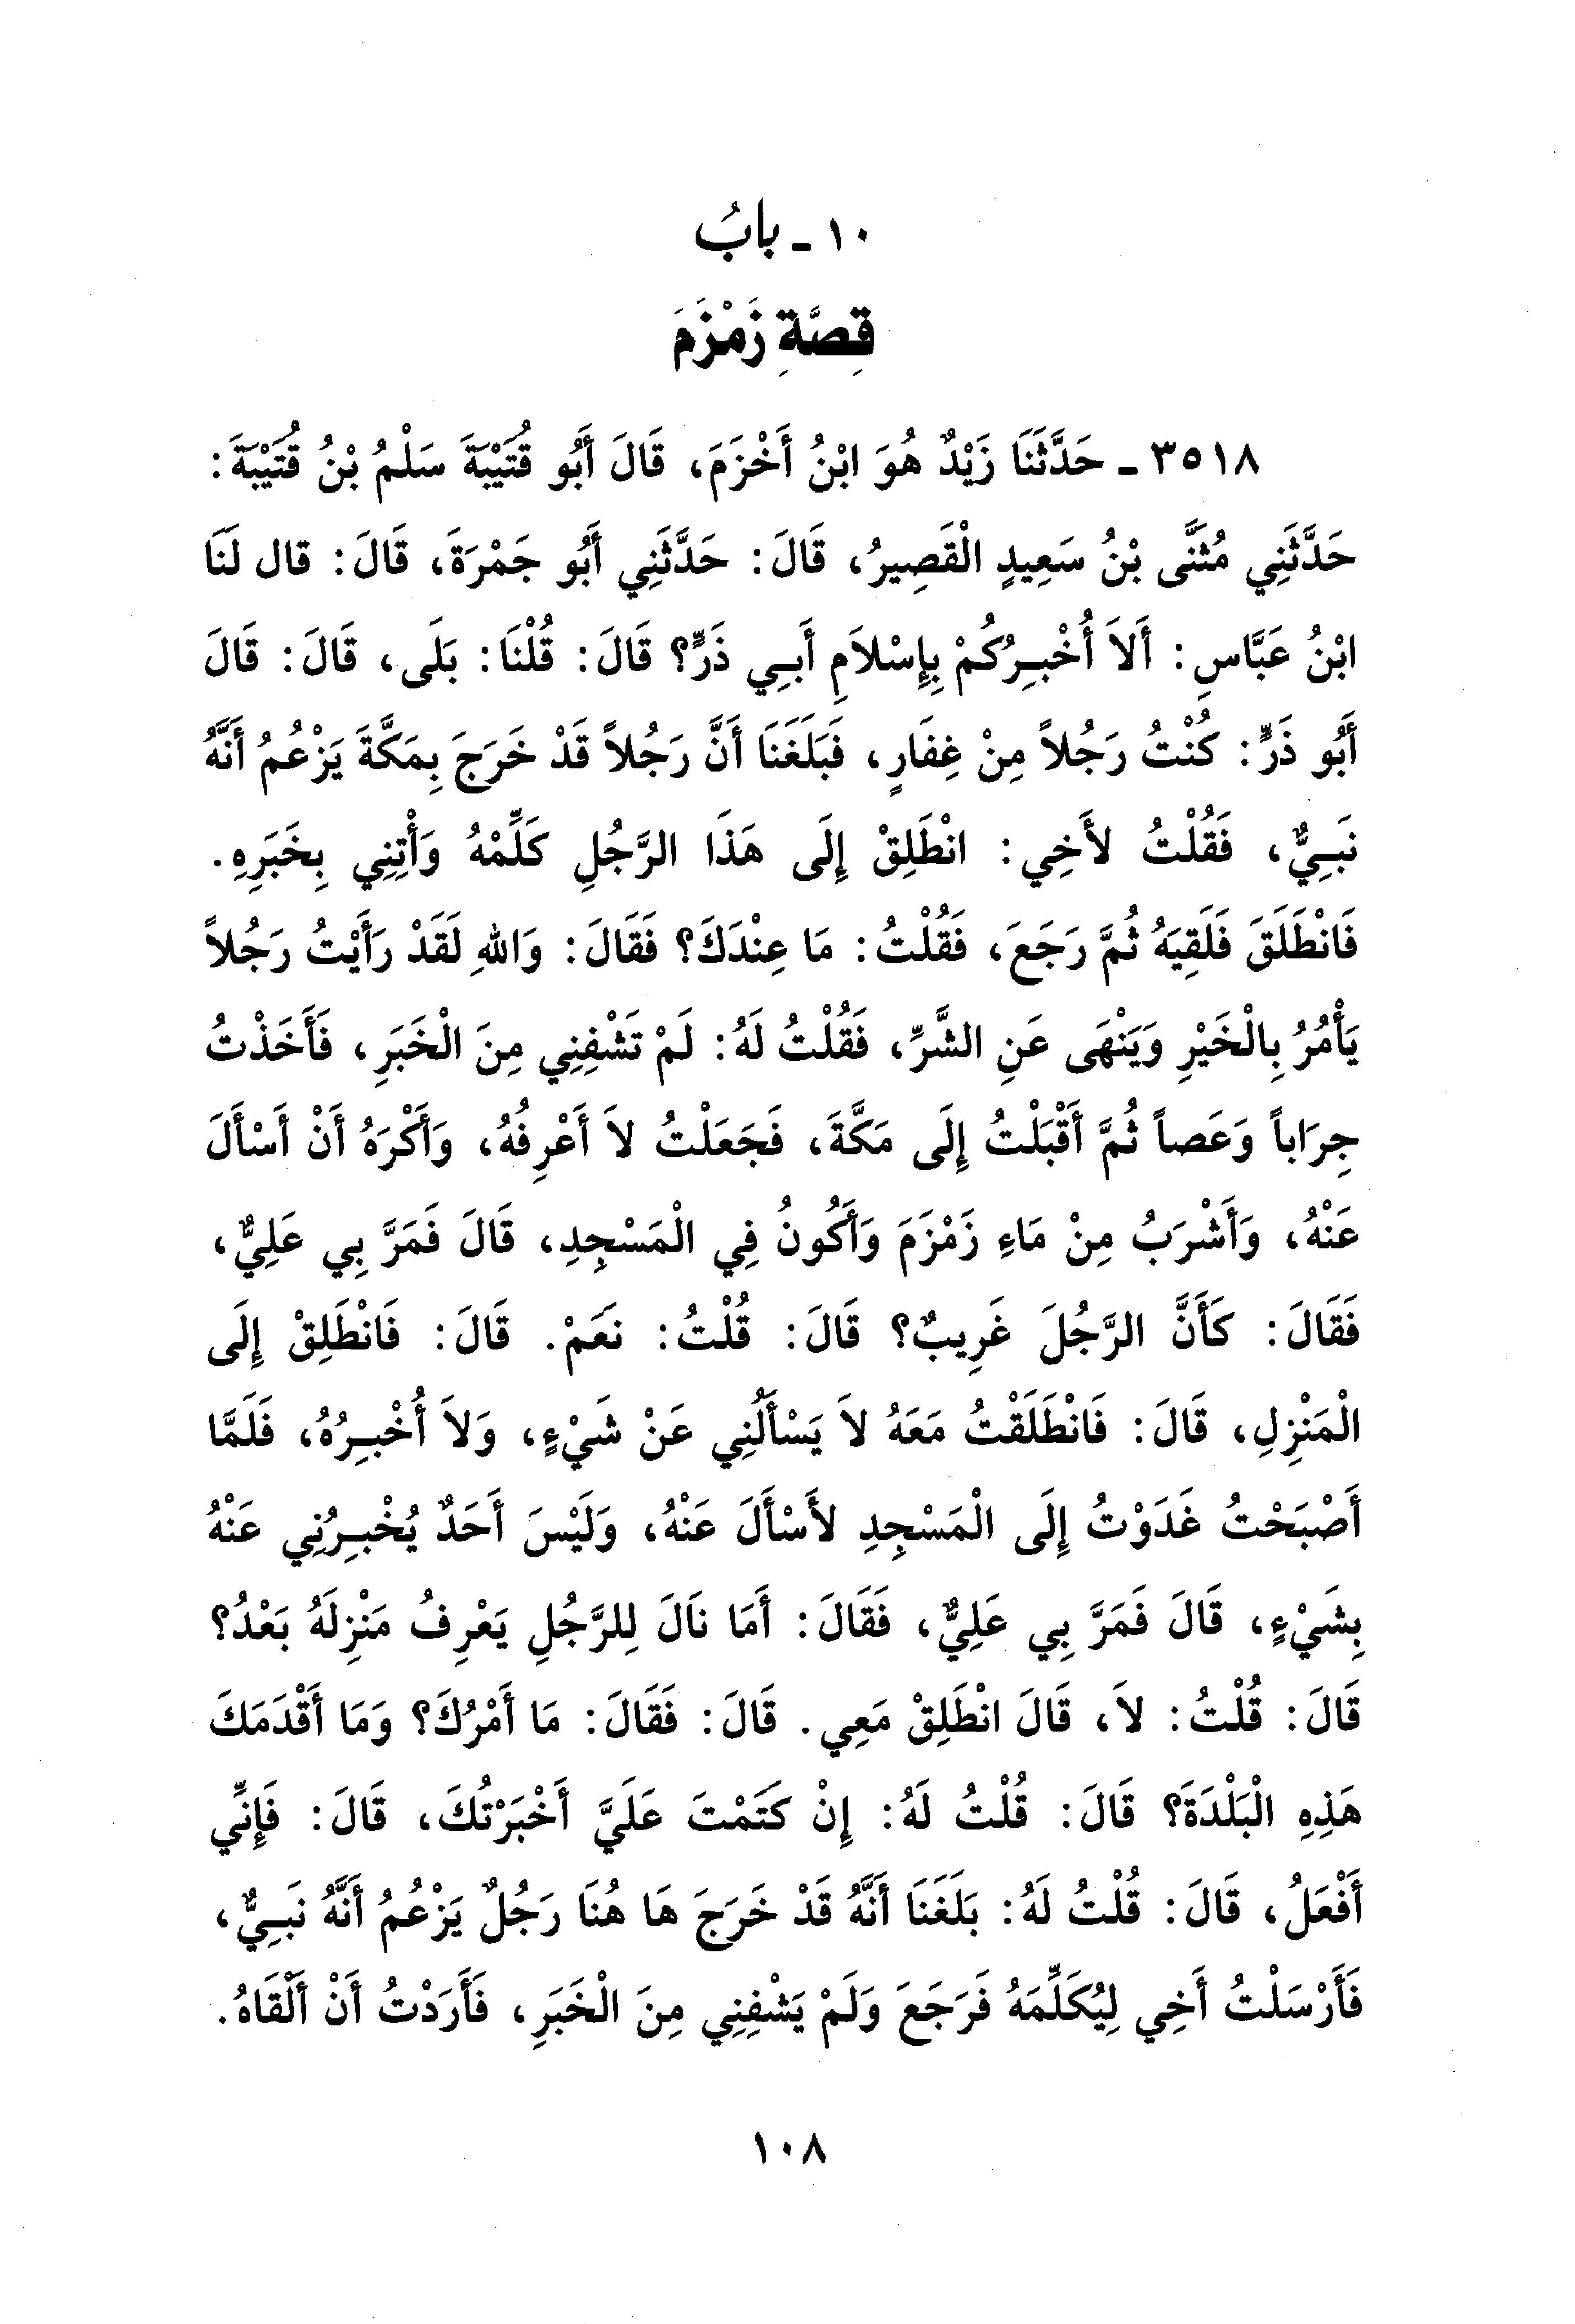 ١٠ ـ بابُ
قِصَّةِ زَمْزَمَ
٣٥١٨ ـ حَدَّثَنَا زَيْدٌ هُوَ ابْنُ أَخْزَمَ، قَالَ أَبُو قُتَيْبَةَ سَلْمُ بْنُ قُتَيْبَةَ:
حَدَّثَنِي مُثَنَّى بْنُ سَعِيدٍ الْقَصِيرُ، قَالَ: حَدَّثَنِي أَبُو جَمْرَةَ، قَالَ: قال لَنَا
ابْنُ عَبَّاسٍ: أَلاَ أُخْبِرُكُمْ بِإِسْلاَمِ أَبِي ذَرٍّ؟ قَالَ: قُلْنَا: بَلَى، قَالَ: قَالَ
أَبُو ذَرٍّ: كُنْتُ رَجُلاً مِنْ غِفَارٍ، فَبَلَغَنَا أَنَّ رَجُلاً قَدْ خَرَجَ بِمَكَّةَ يَزْعُمُ أَنَّهُ
نَبِيٌّ، فَقُلْتُ لأَخِي: انْطَلِقْ إِلَى هَذَا الرَّجُلِ كَلِّمْهُ وَأْتِنِي بِخَبَرِهِ.
فَانْطَلَقَ فَلَقِيَهُ ثُمَّ رَجَعَ، فَقُلْتُ: مَا عِنْدَكَ؟ فَقَالَ: وَاللهِ لَقَدْ رَأَيْتُ رَجُلاً
يَأْمُرُ بِالْخَيْرِ وَيَنْهَى عَنِ الشَّرِّ، فَقُلْتُ لَهُ: لَمْ تَشْفِنِي مِنَ الْخَبَرِ، فَأَخَذْتُ
جِرَاباً وَعَصاً ثُمَّ أَقْبَلْتُ إِلَى مَكَّةَ، فَجَعَلْتُ لاَ أَعْرِفُهُ، وَأَكْرَهُ أَنْ أَسْأَلَ
عَنْهُ، وَأَشْرَبُ مِنْ مَاءِ زَمْزَمَ وَأَكُونُ فِي الْمَسْجِدِ، قَالَ فَمَرَّ بِي عَلِيٌّ،
فَقَالَ: كَأَنَّ الرَّجُلَ غَرِيبٌ؟ قَالَ: قُلْتُ: نَعَمْ. قَالَ: فَانْطَلِقْ إِلَى
الْمَنْزِلِ، قَالَ: فَانْطَلَقْتُ مَعَهُ لاَ يَسْأَلُنِي عَنْ شَيْءٍ، وَلاَ أُخْبِرُهُ، فَلَمَّا
أَصْبَحْتُ غَدَوْتُ إِلَى الْمَسْجِدِ لأَسْأَلَ عَنْهُ، وَلَيْسَ أَحَدٌ يُخْبِرُنِي عَنْهُ
بِشَيْءٍ، قَالَ فَمَرَّ بِي عَلِيٌّ، فَقَالَ: أَمَا نَالَ لِلرَّجُلِ يَعْرِفُ مَنْزِلَهُ بَعْدُ؟
قَالَ: قُلْتُ: لاَ، قَالَ انْطَلِقْ مَعِي. قَالَ: فَقَالَ: مَا أَمْرُكَ؟ وَمَا أَقْدَمَكَ
هَذِهِ الْبَلْدَةَ؟ قَالَ: قُلْتُ لَهُ: إِنْ كَتَمْتَ عَلَيَّ أَخْبَرْتُكَ، قَالَ: فَإِنِّي
أَفْعَلُ، قَالَ: قُلْتُ لَهُ: بَلَغَنَا أَنَّهُ قَدْ خَرَجَ هَا هُنَا رَجُلٌ يَزْعُمُ أَنَّهُ نَبِيٌّ،
فَأَرْسَلْتُ أَخِي لِيُكَلِّمَهُ فَرَجَعَ وَلَمْ يَشْفِنِي مِنَ الْخَبَرِ، فَأَرَدْتُ أَنْ أَلْقَاهُ.
١٠٨